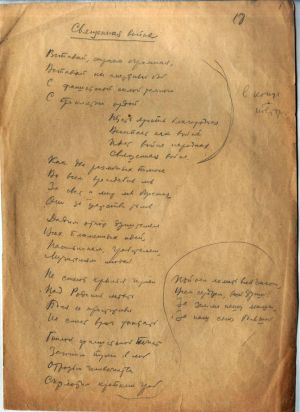 Священная война
Вставай, страна огромная,
Вставай на смертный бой
С фашистской силой темною
С проклятою ордой
Пусть ярость благородная
Вскипает как волна
Идет война народная
Священная война
Как два различных полюса
Во всем враждебны мы
За свет и мир мы боремся
Они за царство тьмы
Дадим отпор душителям
Всех пламенных идей,
Насильникам, грабителям
Мучителям людей
Не смеют крылья черные
Над Родиной летать
Поля ее просторные
Не смеет враг топтать
Гнилой фашистской нечисти
Загоним пулю в лоб
Отродью человечества
Сколотим крепкий гроб
Пойдем ломить всей силою
Всем сердцем, всей душой
За землю нашу милую
За наш союз большой